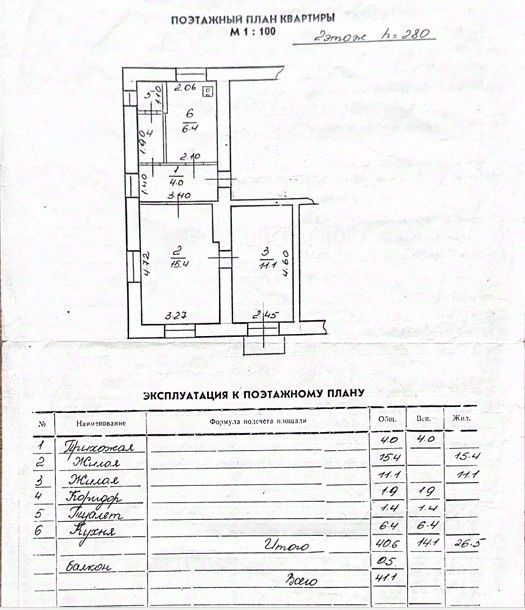 ПОЭТАЖНЫЙ ПЛАН КВАРТИРЫ
М 1 : 100
2 этаж h=280
2.06
5
1.10
6
6.4
4
1.90
2.10
1
4.0
1.40
3.40
2
15.4
4.72
3
11.1
4.60
3.27
2.45
ЭКСПЛУАТАЦИЯ К ПОЭТАЖНОМУ ПЛАНУ
№ Наименование Формула подсчёта площали Общ. Всп. Жил.
1 Прихожая 4.0 4.0
2 Жилая 15.4 15.4
3 Жилая 11.1 11.1
4 Коридор 1.9 1.9
5 Туалет 1.4 1.4
6 Кухня 6.4 6.4
Итого 40.6 14.1 26.5
балкон 0.5
Всего 41.1